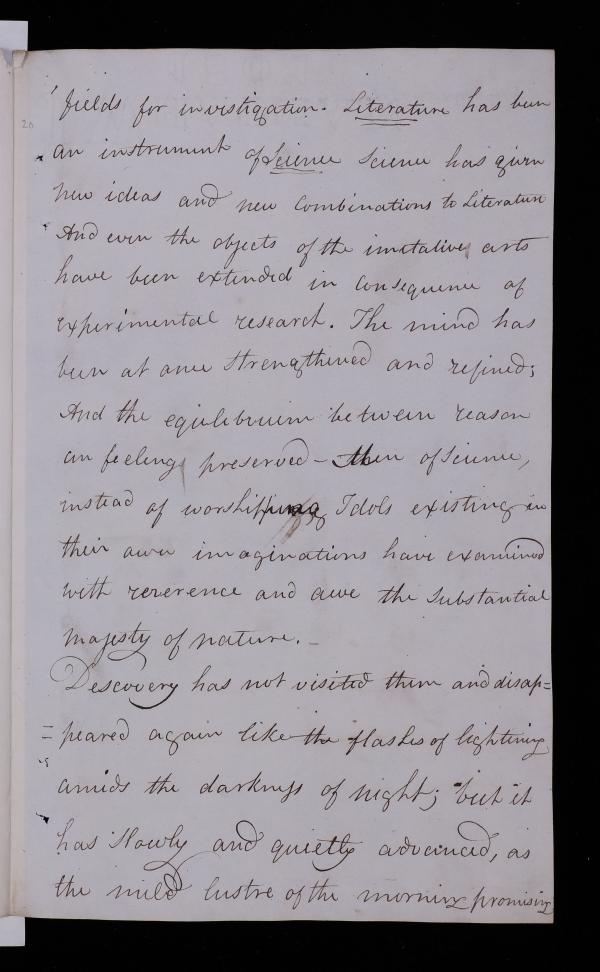 fields for investigation. Literature has been
an instrument of Science Science has given
new ideas and new combinations to Literature
And even the objects of the imitative arts
have been extended in consequence of
experimental research. The mind has
been at once strengthened and refined;
And the equilibrium between reason
an feelings preserved – Men of Science,
instead of worshipping Idols existing in
their own imaginations have examined
with reverence and awe the substantial
majesty of nature. –
Descovery has not visited them and disap=
=peared again like the flashes of lightning
amids the darkness of night; but it
has slowly and quietly advanced, as
the mild lustre of the morning promising